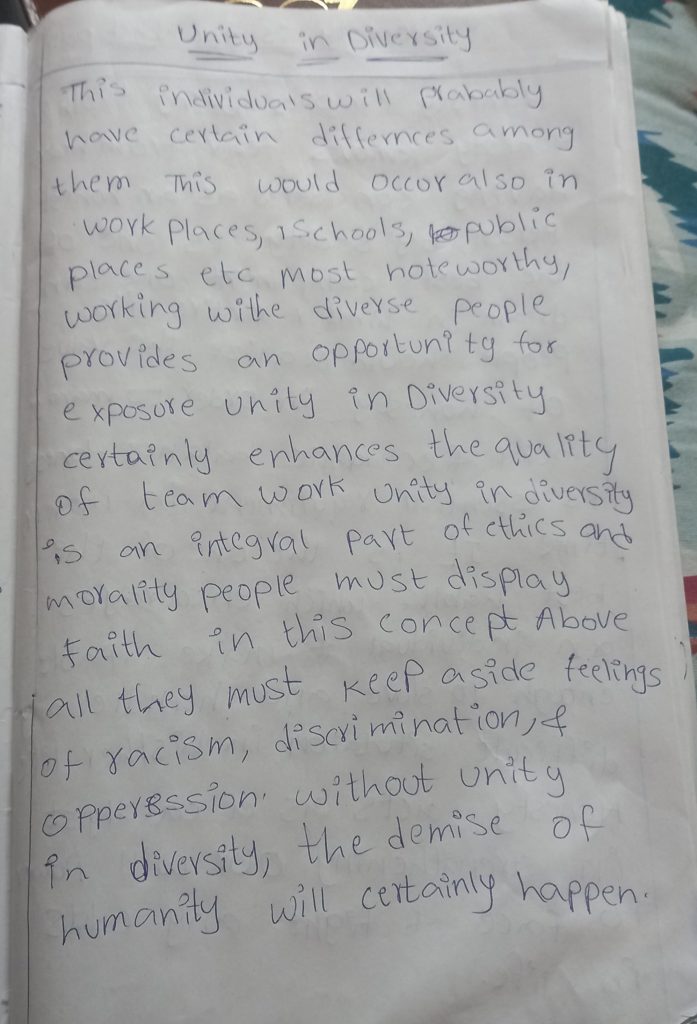 Unity in Diversity
This individuals will prabably
have certain differnces among
them This would occur also in
work places, schools, public
places etc most noteworthy,
working withe diverse people
provides an opportunity for
exposure unity in Diversity
certainly enhances the quality
of team work unity in diversity
is an integral part of ethics and
morality people must display
Faith in this concept Above
all they must keep aside feelings
of racism, discrimination, &
opperession. without unity
in diversity, the demise of
humanity will certainly happen.